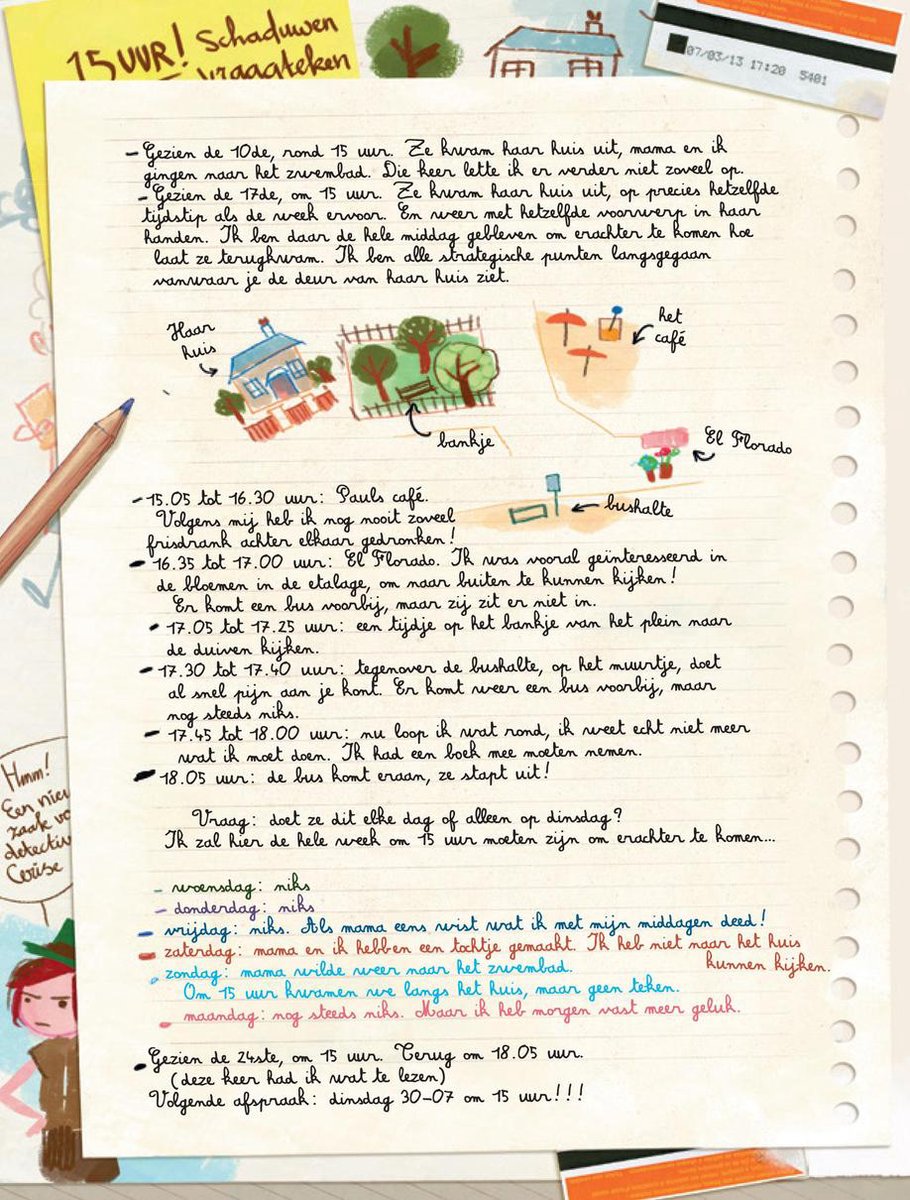 15 UUR! Schaduwen
vraagteken
07/03/13 17:20 5401
- Gezien de 10de, rond 15 uur. Ze kwam haar huis uit, mama en ik
gingen naar het zwembad. Die keer lette ik er verder niet zoveel op.
- Gezien de 17de, om 15 uur. Ze kwam haar huis uit, op precies hetzelfde
tijdstip als de week ervoor. En weer met hetzelfde voorwerp in haar
handen. Ik ben daar de hele middag gebleven om erachter te komen hoe
laat ze terugkwam. Ik ben alle strategische punten langsgegaan
vanwaar je de deur van haar huis ziet.
Haar
huis
het
café
bankje
El Florado
bushalte
- 15.05 tot 16.30 uur: Pauls café.
Volgens mij heb ik nog nooit zoveel
frisdrank achter elkaar gedronken!
- 16.35 tot 17.00 uur: El Florado. Ik was vooral geïnteresseerd in
de bloemen in de etalage, om naar buiten te kunnen kijken!
Er komt een bus voorbij, maar zij zit er niet in.
- 17.05 tot 17.25 uur: een tijdje op het bankje van het plein naar
de duiven kijken.
- 17.30 tot 17.40 uur: tegenover de bushalte, op het muurtje, doet
al snel pijn aan je kont. Er komt weer een bus voorbij, maar
nog steeds niks.
- 17.45 tot 18.00 uur: nu loop ik wat rond, ik weet echt niet meer
wat ik moet doen. Ik had een boek mee moeten nemen.
- 18.05 uur: de bus komt eraan, ze stapt uit!
Vraag: doet ze dit elke dag of alleen op dinsdag?
Ik zal hier de hele week om 15 uur moeten zijn om erachter te komen...
- woensdag: niks
- donderdag: niks
- vrijdag: niks. Als mama eens wist wat ik met mijn middagen deed!
- zaterdag: mama en ik hebben een tochtje gemaakt. Ik heb niet naar het huis
kunnen kijken.
- zondag: mama wilde weer naar het zwembad.
Om 15 uur kwamen we langs het huis, maar geen teken.
- maandag: nog steeds niks. Maar ik heb morgen vast meer geluk.
- Gezien de 24ste, om 15 uur. Terug om 18.05 uur.
(deze keer had ik wat te lezen)
Volgende afspraak: dinsdag 30-07 om 15 uur!!!
Hmm!
Een nieu
zaak vo
detectiv
Cerise